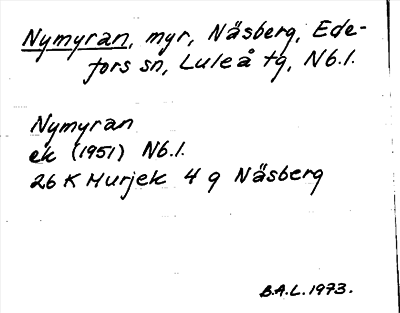 Nymyran, myr, Näsberg, Ede-
fors sn, Luleå tg, Nb.l.
Nymyran
ek (1951) Nb.l.
26 K Murjek 4 g Näsberg
B.A.L. 1973.